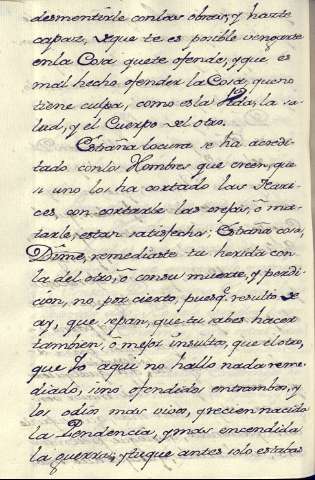 desmentirle con las obras, y hazte
capaz, de que te es posible vengarte
en la Cosa que te ofende, y que es
mal hecho ofender la Cosa, que no
tiene culpa, como es la Vida, la sa-
lud, y el Cuerpo del otro.
Estraña locura se ha acredi-
tado con los Hombres que creen, que
si uno los ha cortado las Nari-
ces, con cortarle las orejas, ò ma-
tarle, estan satisfechos; Estraña cosa,
Dime, remediaste tu herida con
la del otro, ò con su muerte, y perdi-
cion, no por cierto, pues q.e resulto de
ay, que sepan, que tu sabes hacer
tambien, ò mejor insulto, que el otro,
que Yo aqui no hallo nada reme-
diado, sino ofendidos entrambos, y
los odios mas vivos, y recien nacida
la Pendencia, y mas encendida
la guerra, y tu que antes solo estabas